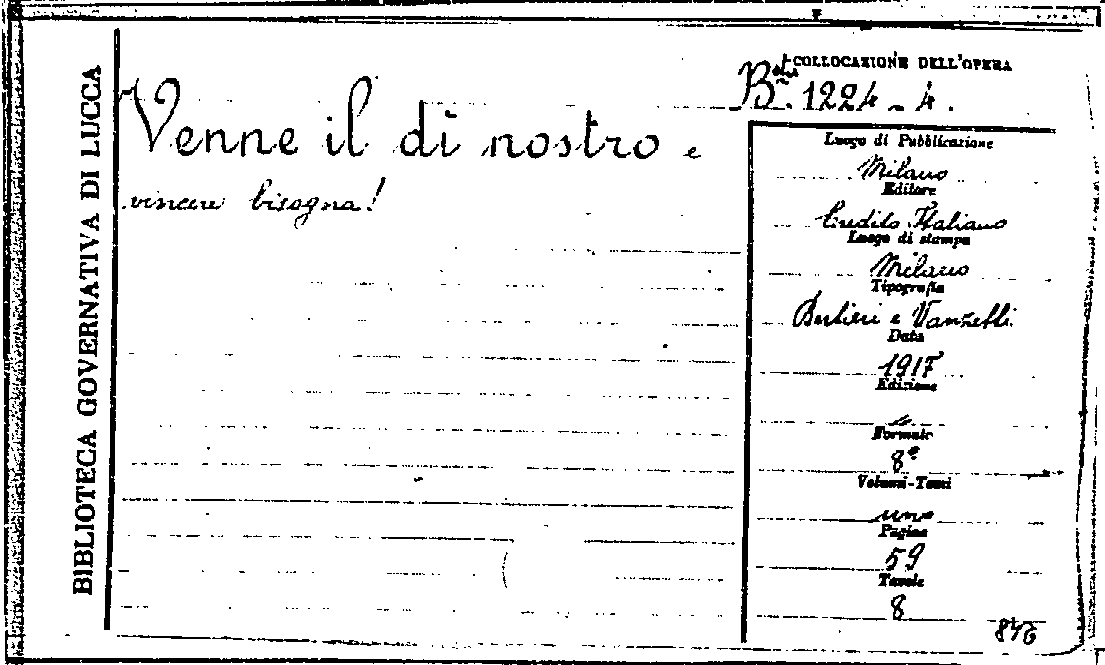 BIBLIOTECA GOVERNATIVA DI LUCCA
COLLOCAZIONE DELL'OPERA
Bta. 1224-4.
Venne il dì nostro e
vincere bisogna!
Luogo di Pubblicazione
Milano
Editore
Credito Italiano
Luogo di stampa
Milano
Tipografia
Bertieri e Vanzetti
Data
1917
Edizione
Formato
8°
Volumi-Tomi
uno
Pagine
59
Tavole
8